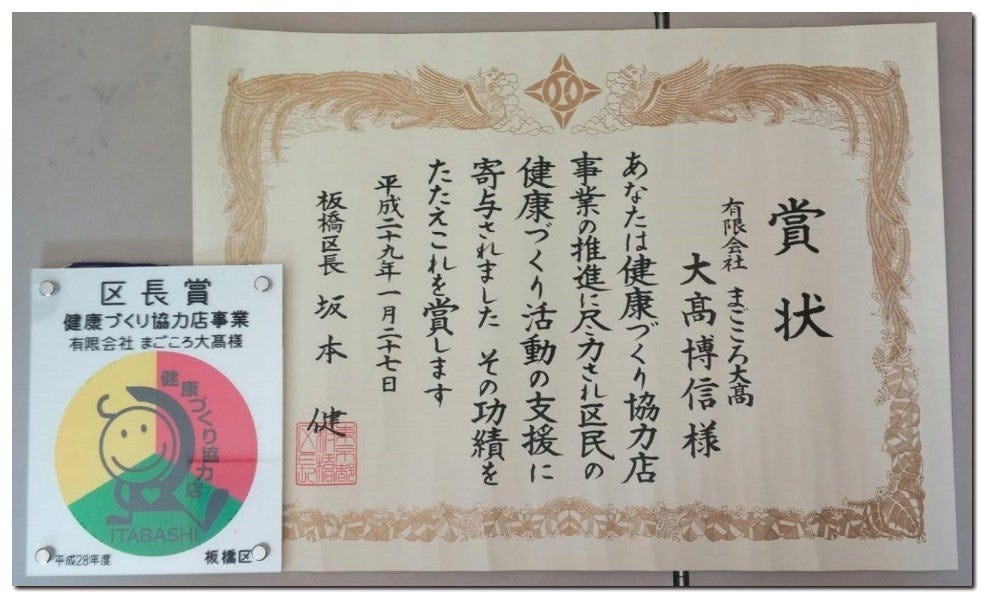 賞状
有限会社 まごころ大髙
大髙博信様
あなたは健康づくり協力店
事業の推進に尽力され区民の
健康づくり活動の支援に
寄与されました その功績を
たたえこれを賞します
平成二十九年一月二十七日
板橋区長 坂本 健
区長賞
健康づくり協力店事業
有限会社 まごころ大髙様
健康づくり協力店
ITABASHI
平成28年度
板橋区